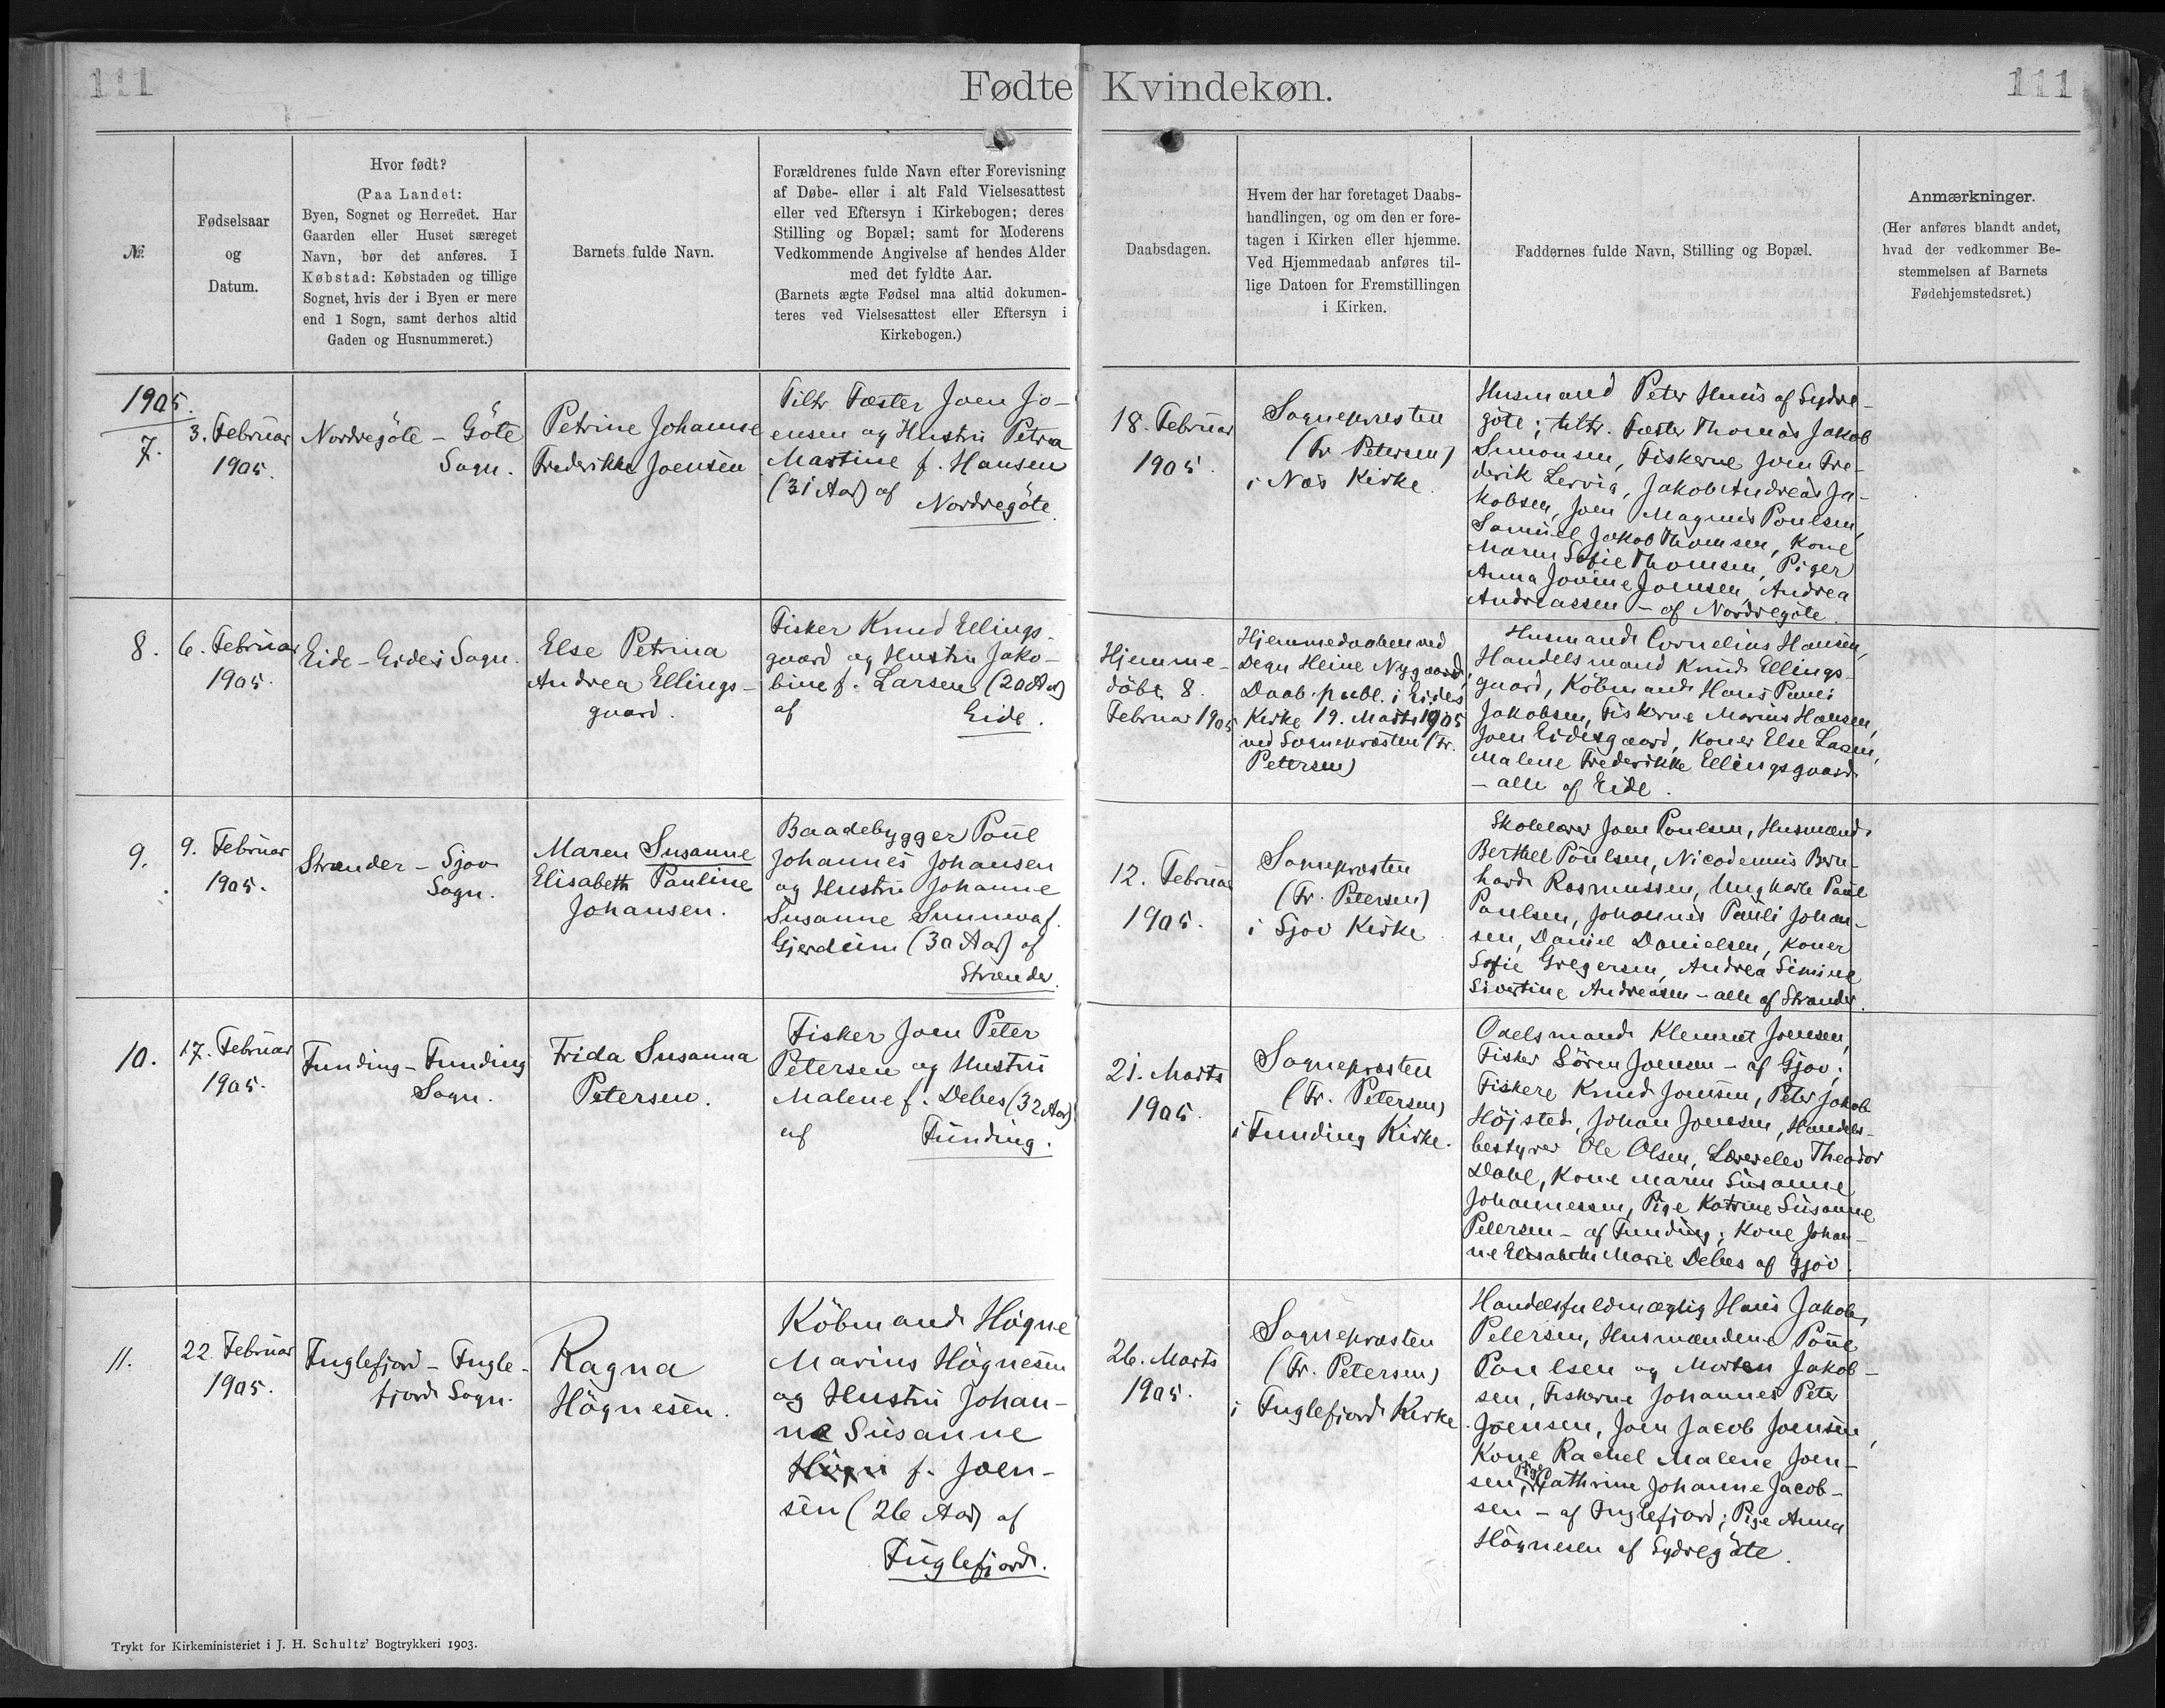 111
Fødte Kvindekøn.
111
№
Fødselsaar
og
Datum.
Hvor født?
(Paa Landet:
Byen, Sognet og Herredet. Har
Gaarden eller Huset særeget
Navn, bør det anføres. I
Købstad: Købstaden og tillige
Sognet, hvis der i Byen er mere
end 1 Sogn, samt derhos altid
Gaden og Husnummeret.)
Barnets fulde Navn.
Forældrenes fulde Navn efter Forevisning
af Døbe- eller i alt Fald Vielsesattest
eller ved Eftersyn i Kirkebogen; deres
Stilling og Bopæl; samt for Moderens
Vedkommende Angivelse af hendes Alder
med det fyldte Aar.
(Barnets ægte Fødsel maa altid dokumen-
teres ved Vielsesattest eller Eftersyn i
Kirkebogen.)
Daabsdagen.
Hvem der har foretaget Daabs-
handlingen, og om den er fore-
tagen i Kirken eller hjemme.
Ved Hjemmedaab anføres til-
lige Datoen for Fremstillingen
i Kirken.
Faddernes fulde Navn, Stilling og Bopæl.
Anmærkninger.
(Her anføres blandt andet,
hvad der vedkommer Be-
stemmelsen af Barnets
Fødehjemstedsret.)
1905.
7.
3. Februar
1905.
Nordregöte - Göte
Sogn.
Petrine Johanne
Frederikke Joensen
Tiltr Fæster Joen Jo-
ensen og Hustru Petra
Martine f. Hansen
(31 Aar) af
Nordregöte.
18. Februar
1905.
Sognepræsten
(Fr Petersen)
i Næs Kirke.
Husmand Peter Huus af Sydre-
göte; tiltr. Fæster Thomas Jakob
Simonsen, Fiskerne Joen Fre-
derik Lervig, Jakob Andreas Ja-
kobsen, Joen Magnus Poulsen,
Samuel Jakob Thomsen, Kone
Maren Sofie Thomsen, Piger
Anna Jovine Joensen, Andrea
Andreassen - af Nordregöte.
8.
6. Februar
1905.
Eide - Eides Sogn.
Else Petrina
Andrea Ellings-
gaard.
Fisker Knud Ellings-
gaard og Hustru Jako-
bine f. Larsen (20 Aar)
af Eide.
Hjemme-
döbt 8.
Februar 1905
Hjemmedaaben ved
Degn Heine Nygaard,
Daab. publ. i Eides
Kirke 19. Marts 1905
ved Sognepræsten (Fr.
Petersen)
Husmand Cornelius Hansen,
Handelsmand Knud Ellings-
gaard, Købmand Hans Pauli
Jakobsen, Fiskerne Marius Hansen,
Joen Eidesgaard, Koner Else Larsen,
Malene Frederikke Ellingsgaard
- alle af Eide.
9.
9. Februar
1905.
Strænder - Sjov
Sogn.
Maren Susanne
Elisabeth Pauline
Johansen.
Baadebygger Poul
Johannes Johansen
og Hustru Johanne
Susanne Sunneva f.
Gjerdum (30 Aar) af
Strænder.
12. Februar
1905.
Sognepræsten
(Fr. Petersen)
i Sjov Kirke.
Skolelærer Joen Poulsen, Husmænd
Berthel Poulsen, Nicodemus Bern-
hard Rasmussen, Ungkarle Poul
Poulsen, Johannes Pauli Johan-
sen, Daniel Danielsen, Koner
Sofie Gregersen, Andrea Simine
Sivertine Andreasen - alle af Strænder.
10.
17. Februar
1905.
Funding - Funding
Sogn.
Frida Susanna
Petersen.
Fisker Joen Peter
Petersen og Hustru
Malene f. Debes (32 Aar)
af Funding.
21. Marts
1905.
Sognepræsten
(Fr. Petersen)
i Funding Kirke.
Odelsmand Klement Joensen,
Fisker Sören Joensen - af Gjov;
Fiskere Knud Joensen, Peter Jakob
Höjsted, Johan Joensen, Handels-
bestyrer Ole Olsen, Lærerelev Theodor
Dahl, Kone Maren Susanne
Johannessen, Pige Katrine Susanne
Petersen - af Funding; Kone Johan-
ne Elisabeth Marie Debes af Gjov.
11.
22. Februar
1905.
Fuglefjord - Fugle-
fjord Sogn.
Ragna
Högnesen.
Köbmand Högne
Marius Högnesen
og Hustru Johan-
ne Susanne
f. Joen-
sen (26 Aar) af
Fuglefjord.
26. Marts
1905.
Sognepræsten
(Fr. Petersen)
i Fuglefjord Kirke
Handelsfuldmægtig Hans Jakob
Petersen, Husmændene Poul
Poulsen og Morten Jakob-
sen, Fiskerne Johannes Peter
Joensen, Joen Jacob Joensen,
Kone Rachel Malene Joen-
sen, Pige Cathrine Johanne Jacob-
sen - af Fuglefjord; Pige Anna
Högnesen af Sydregöte.
Trykt for Kirkeministeriet i J. H. Schultz' Bogtrykkeri 1903.